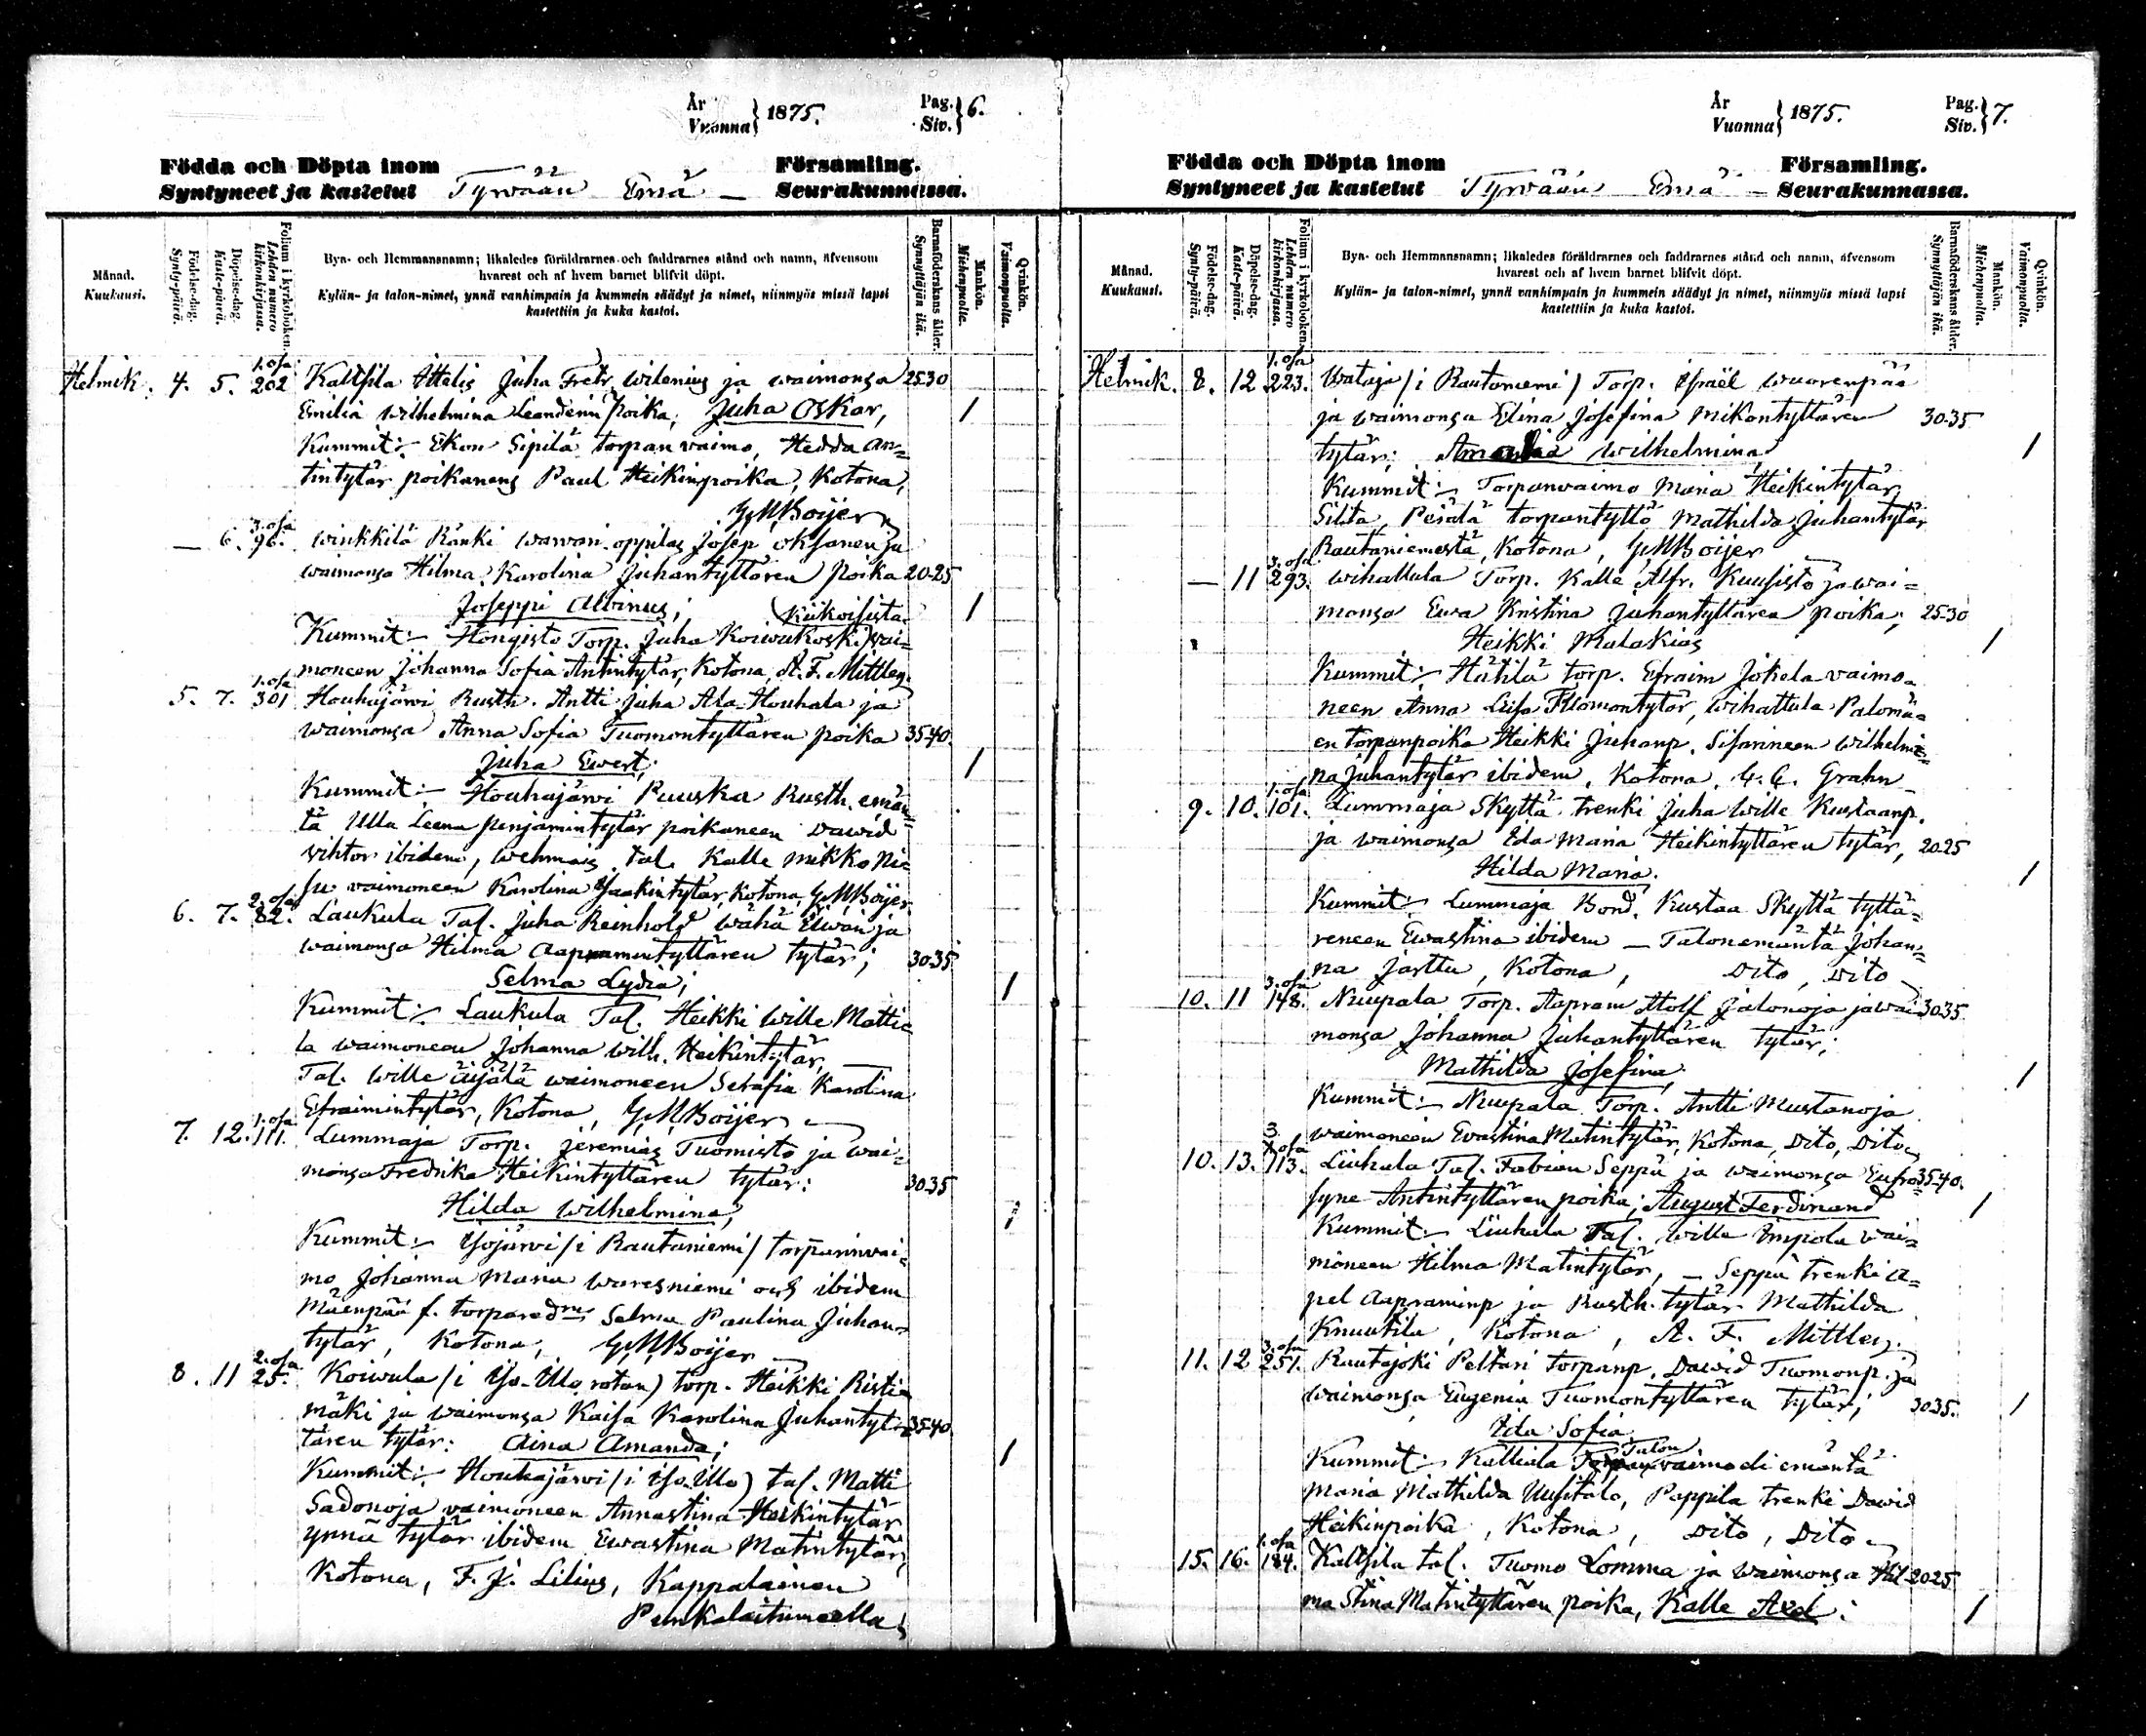 År
Vuonna } 1875. Pag.
Siv. } 6.
Födda och Döpta inom Församling.
Syntyneet ja kastetut Tyrvään Emä — Seurakunnassa.
Månad.
Kuukausi.
Födelse-dag.
Synty-päivä.
Döpelse-dag.
Kaste-päivä.
Folium i kyrkoboken.
Lehden numero kirkonkirjassa.
Bya- och Hemmansnamn; likaledes föräldrarnes och faddrarnes stånd och namn, äfvensom
hvarest och af hvem barnet blifvit döpt.
Kylän- ja talon-nimet, ynnä vanhimpain ja kummein säädyt ja nimet, niinmyös missä lapsi
kastettiin ja kuka kastoi.
Barnaföderskans ålder.
Synnyttäjän ikä.
Mankön.
Miehenpuolia.
Qvinkön.
Vaimonpuolia.
Helmik. 4. 5. 1. osa 202 Kaltsila Ittelis Juha Fredr. Wilenius ja waimonsa 25-30
Emilia Wilhelmina Leanderin poika; Juha Oskar, /
Kummit:- Ekon Sipilä torpan vaimo, Hedda An=
tintytär poikanens Paul Heikinpoika, Kotona,
G M Boijer
— 6. 3. osa 96. Winkkilä Ränki Wawan oppilas Josep Oksanen ja
waimonsa Hilma Karolina Juhantyttären poika 20-25
Joseppi Albinus; (Kiikoisista /
Kummit:- Hongisto Torp. Juha Koiwukoski) wai=
moneen Johanna Sofia Antintytär, Kotona, A. F. Mittler.
5. 7. 1. osa 301 Houhajärwi Rusth. Antti Juha Ala Houhala ja
waimonsa Anna Sofia Tuomontyttären poika 35-40.
Juha Ewert; /
Kummit:- Houhajärwi Ruuska Rusth. emän=
tä Ulla Leena Penjamintytär poikaneen Dawid
Vihtor ibidem, Wehmais tal. Kalle Mikko Ni=
su vaimoneen Karolina Jsaakintytär, Kotona, G M Boijer
6. 7. 2. osa 82. Laukula Tal. Juha Reinhold Wähä Eiwän ja
waimonsa Hilma Aapramintyttären tytär; 30-35
Selma Lydia; /
Kummit:- Laukula Tal. Heikki Wille Matti=
la waimoneen Johanna Wilh. Heikintytär,
Tal. Wille Äijälä waimoneen Serafia Karolina
Efraimintytär, Kotona, G M Boijer
7. 12. 1. osa 111. Lummaja Torp. Jeremias Tuomisto ja wai=
monsa Fredrika Heikintyttären tytär: 30-35
Hilda Wilhelmina, /
Kummit:- Isojärwi /i Rautaniemi/ torparinwai=
mo Johanna Maria Waresniemi och ibidem
Mäenpää f. torpared:ns Selma Paulina Juhan=
tytär, Kotona, G M Boijer
8. 11 2. osa 25. Koiwula (i Iso-Ulla rotan) torp. Heikki Risti=
mäki ja waimonsa Kaisa Karolina Juhantyt= 35-40
tären tytär: Aina Amanda; /
Kummit:- Houhajärwi (i Iso-Ulla) tal. Matti
Sadonoja vaimoneen Annastina Heikintytär
ynnä tytär ibidem Ewastina Matintytär,
Kotona, F. J. Lilius, Kappalainen
Punkalaitumella,
År
Vuonna } 1875. Pag.
Siv. } 7.
Födda och Döpta inom Församling.
Syntyneet ja kastetut Tyrvään Emä — Seurakunnassa.
Månad.
Kuukausi.
Födelse-dag.
Synty-päivä.
Döpelse-dag.
Kaste-päivä.
Folium i kyrkoboken.
Lehden numero kirkonkirjassa.
Bya- och Hemmansnamn; likaledes föräldrarnes och faddrarnes stånd och namn, äfvensom
hvarest och af hvem barnet blifvit döpt.
Kylän- ja talon-nimet, ynnä vanhimpain ja kummein säädyt ja nimet, niinmyös missä lapsi
kastettiin ja kuka kastoi.
Barnaföderskans ålder.
Synnyttäjän ikä.
Mankön.
Miehenpuolia.
Qvinkön.
Vaimonpuolia.
Helmik. 8. 12 1. osa 223. Wataja /i Rautaniemi/ Torp. Israël Wuorenpää
ja waimonsa Elina Josefina Mikontyttären 30-35
tytär; Amalia Wilhelmina /
Kummit:- Torpanvaimo Maria Heikintytär
Silta, Peräla torpantyttö Mathilda Juhantytär
Rautaniemestä, Kotona, G M Boijer
— 11 3. osa 293. Wihattula Torp. Kalle Alfr. Kuusisto ja wai=
monsa Ewa Kristina Juhantyttären poika; 25-30
Heikki Malakias /
Kummit:- Hähla torp. Efraim Jokela vaimo=
neen Anna Leisa Filomontytär, Wihattula Palomä=
en torpanpoika Heikki Juhanp. Sisarineen Wilhelmi=
na Juhantytär ibidem, Kotona, G. A. Grahn
9. 10. 1. osa 101. Lummaja Skyttä trenki Juha Wille Kustaanp.
ja waimonsa Eda Maria Heikintyttären tytär, 20-25
Hilda Maria. /
Kummit:- Lummaja Bond. Kustaa Skyttä tyttä=
reneen Ewastina ibidem — Talonemäntä Johan=
na Jarttu, Kotona, Dito, Dito
10. 11 3. osa 148. Nuupala Torp. Aapram Atolf Jalonoja ja wai= 30-35
monsa Johanna Juhantyttären tytär;
Mathilda Josefina, /
Kummit:- Nuupala Torp. Antti Mustanoja
waimoneen Ewastina Matintytär, Kotona, Dito, Dito
10. 13. 3. osa 113. Liuhala Tal. Fabian Seppä ja waimonsa Eufro= 35-40.
syne Antintyttären poika; August Ferdinand /
Kummit:- Liuhala Tal. Wille Impola wai=
moneen Hilma Matintytär, — Seppä trenki A=
pel Aapraminp ja Rusth. tytär Mathilda
Knuutila, Kotona, A. F. Mittler,
11. 12 3. osa 251. Rautajoki Peltari torpanp. Dawid Tuomonp. ja
waimonsa Eugenia Tuomontyttären tytär; 30-35. /
Eda Sofia
Kummit:- Kalliala Talon vaimo eli emäntä
Maria Mathilda Uusitalo, Pappila trenki Dawid
Heikinpoika, Kotona, Dito, Dito
15. 16. 1. osa 184. Kaltsila tal. Tuomo Lomma ja waimonsa Hil= 20-25
ma Stina Matintyttären poika, Kalle Axel: /